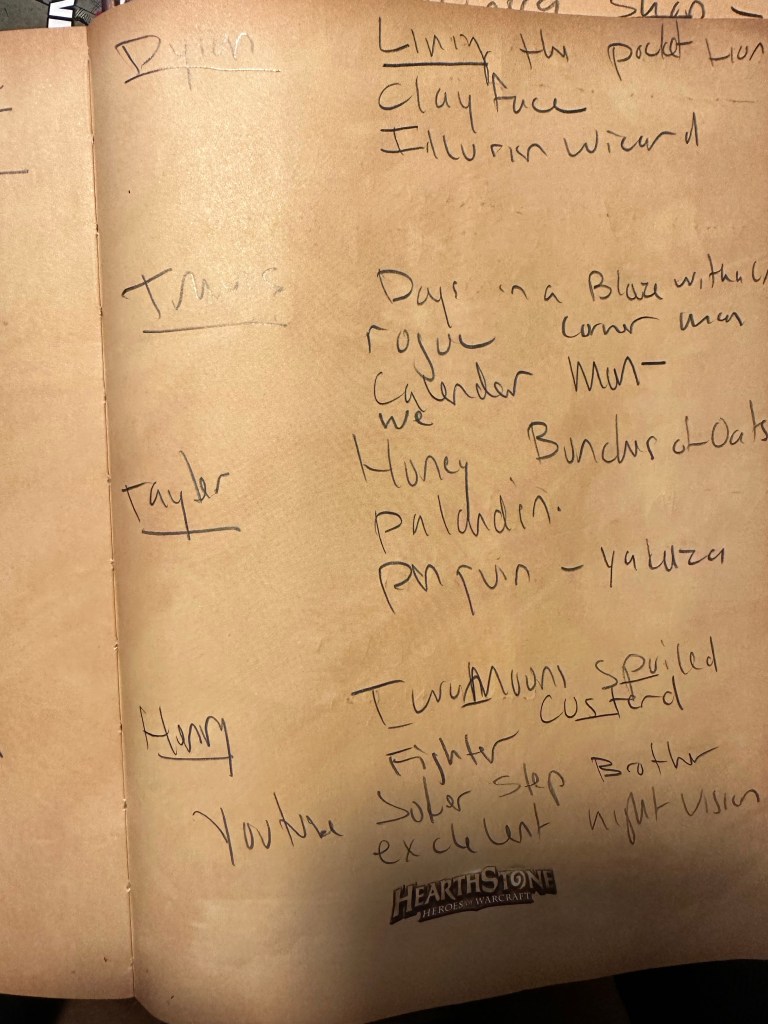 Dylan
Lining the pocket Lion
Clay face
Illusion wizard
Days in a Blaze with a
rogue corner man
Calender Man-
we
Tayler
Honey Bunches of Oats
paladin.
penguin - yakuza
Henry
Two Moons spoiled
custerd
Fighter
Joker step Brother
Youtube
excelent night vision
HEARTHSTONE
HEROES OF WARCRAFT